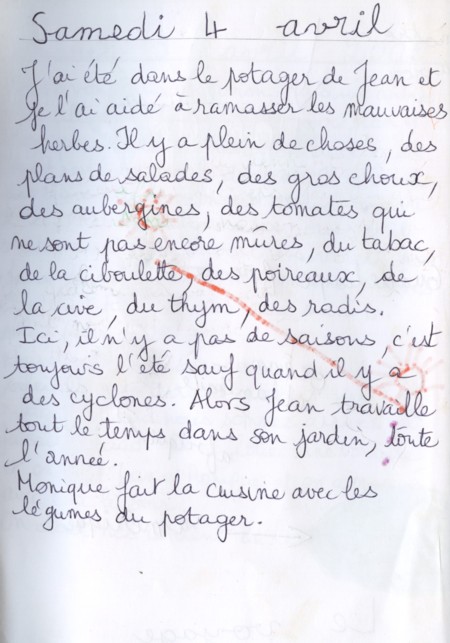 Samedi 4 avril
J'ai été dans le potager de Jean et
je l'ai aidé à ramasser les mauvaises
herbes. Il y a plein de choses, des
plans de salades, des gros choux,
des aubergines, des tomates qui
ne sont pas encore mûres, du tabac,
de la ciboulette, des poireaux, de
la cive, du thym, des radis.
Ici, il n'y a pas de saisons, c'est
toujours l'été sauf quand il y a
des cyclones. Alors Jean travaille
tout le temps dans son jardin, toute
l'année.
Monique fait la cuisine avec les
légumes du potager.